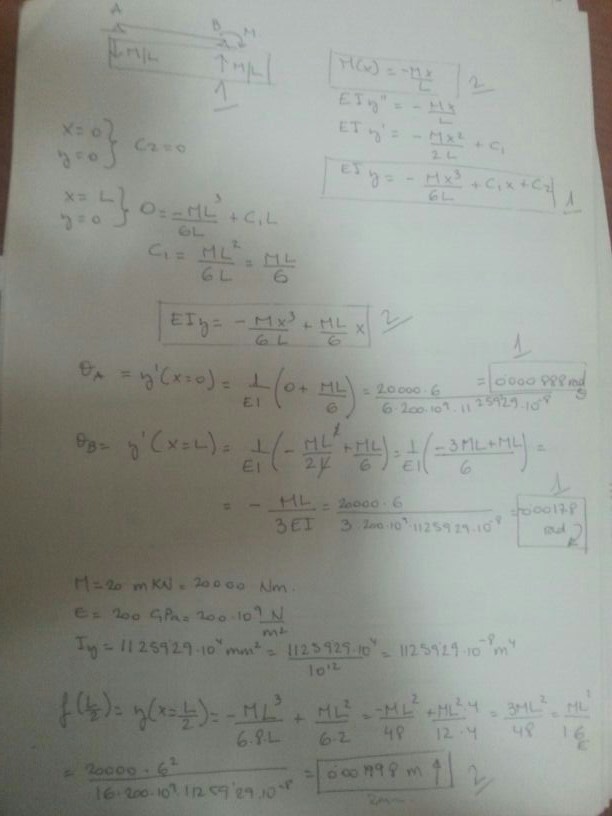 A B M
↓M/L ↑M/L
M(x) = -Mx/L 2
EIy'' = - Mx/L
EIy' = - Mx²/2L + C₁
EIy = - Mx³/6L + C₁x + C₂ 1
x=0 y=0 } C₂=0
x=L y=0 } 0 = -ML³/6L + C₁L
C₁ = ML²/6L = ML/6
EIy = - Mx³/6L + ML/6 x 2
1
θA = y'(x=0) = 1/EI (0 + ML/6) = 20000·6 / 6·200·10⁹·1125929·10⁻⁸ = 0'000888 rad
θB = y'(x=L) = 1/EI (- ML²/2L + ML/6) = 1/EI (-3ML+ML / 6) =
1
= - ML/3EI = 20000·6 / 3·200·10⁹·1125929·10⁻⁸ = 0'00178 rad
M = 20 mKN = 20000 Nm.
E = 200 GPa = 200·10⁹ N/m²
Iy = 1125929·10⁴ mm² = 1125929·10⁴/10¹² = 1125929·10⁻⁸ m⁴
f(L/2) = y(x=L/2) = - ML³/6·8L + ML²/6·2 = -ML²/48 + ML²·4/12·4 = 3ML²/48 = ML²/16 E
= 20000·6² / 16·200·10⁹·1125929·10⁻⁸ = 0'001998 m ↑ 2